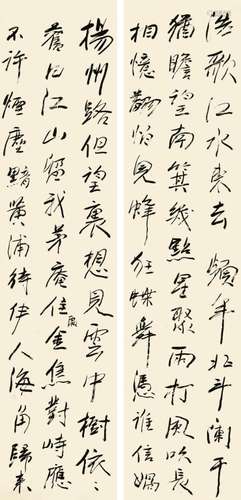 浩歌江水東去頻年北斗闌干
猶瞻望南箕幾點星聚雨打風吹長
相憶翻怕見蜂狂蝶舞憑誰信
揚州路但望裏想見雲中樹依々
舊日江山留我茅庵住金焦對峙應
不許煙塵黯黃浦待伊人海角歸來